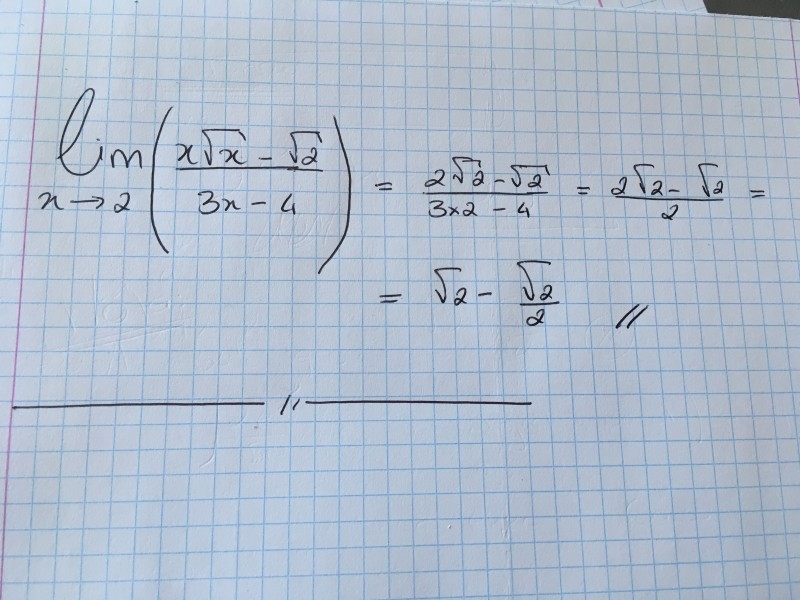 lim x→2 (x√x - √2 / 3x - 4) = 2√2 - √2 / 3×2 - 4 = 2√2 - √2 / 2 =
= √2 - √2 / 2 //
//